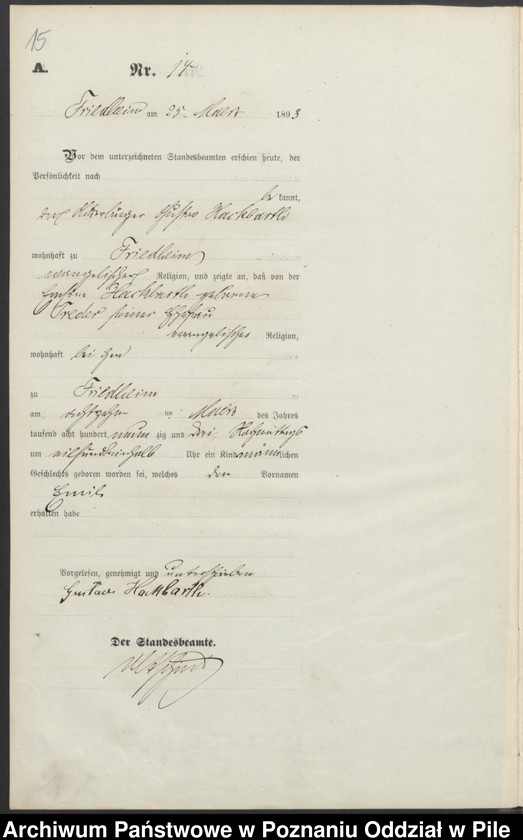 15
A.
Nr. 14
Friedheim am 25. Maerz 1893
Vor dem unterzeichneten Standesbeamten erschien heute, der
Persönlichkeit nach
be kannt,
der Ackerbürger Gustav Hackbarth
wohnhaft zu Friedheim
evangelischer Religion, und zeigte an, daß von der
Hackbarth geborene
Treder seiner Ehefrau
evangelischer Religion,
wohnhaft bei ihm
zu Friedheim
am achtzehn ten Maerz des Jahres
tausend acht hundert neun zig und drei, Nachmittags
um Uhr ein Kind männ lichen
Geschlechts geboren worden sei, welches den Vornamen
Emil
erhalten habe
Vorgelesen, genehmigt und unterschrieben
Gustav Hackbarth.
Der Standesbeamte.
Archiwum Państwowe w Poznaniu Oddział w Pile